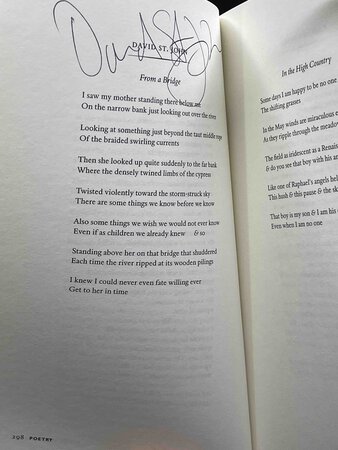 David St. John
DAVID ST. JOHN
From a Bridge
I saw my mother standing there below me
On the narrow bank just looking out over the river
Looking at something just beyond the taut middle rope
Of the braided swirling currents
Then she looked up quite suddenly to the far bank
Where the densely twined limbs of the cypress
Twisted violently toward the storm-struck sky
There are some things we know before we know
Also some things we wish we would not ever know
Even if as children we already knew & so
Standing above her on that bridge that shuddered
Each time the river ripped at its wooden pilings
I knew I could never even fate willing ever
Get to her in time
298 POETRY
In the High Country
Some days I am happy to be no one
The shifting grasses
In the May winds are miraculous
As they ripple through the
The field as iridescent as a
& do you see that boy with his
Like one of Raphael's angels
This hush & this pause & the
That boy is my son & I am his
Even when I am no one